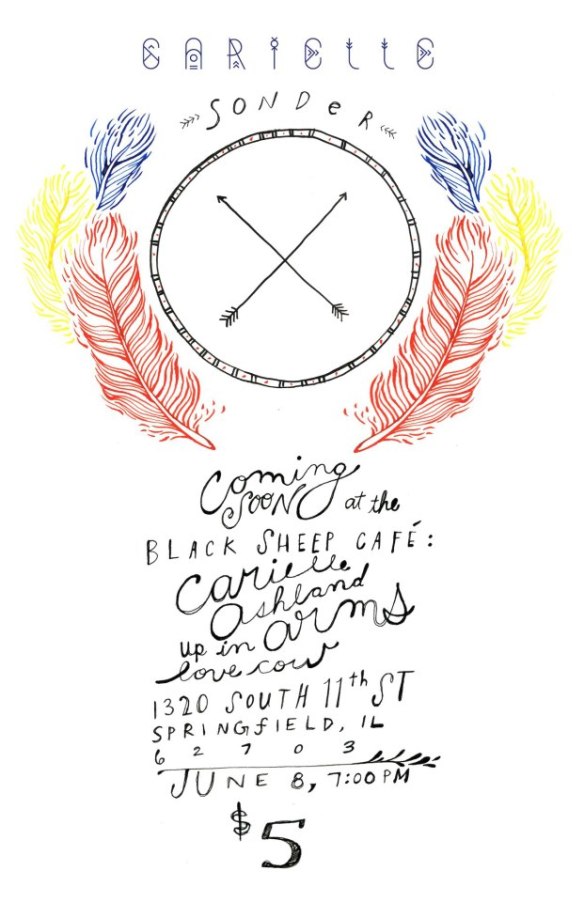 CARIELLE
SONDER
Coming
SOON at the
BLACK SHEEP CAFÉ:
Carielle
Ashland
up in arms
love cow
1320 SOUTH 11th ST
SPRINGFIELD, IL
62703
JUNE 8, 7:00 PM
$5